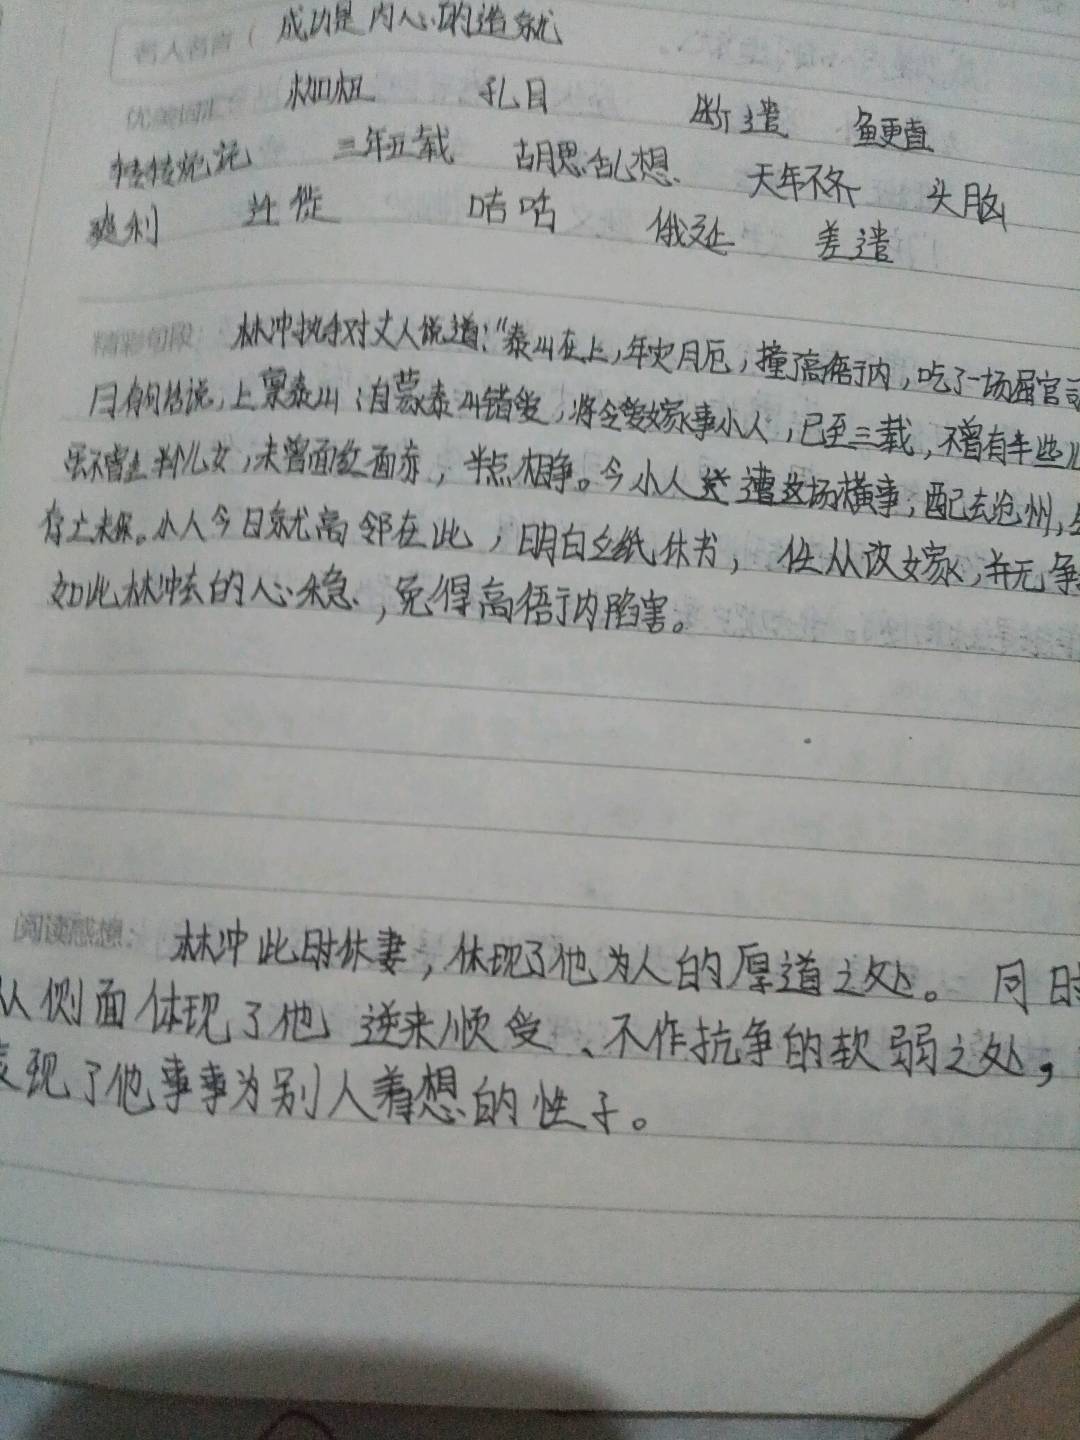 名人名言（ 成功是内心的造就
优美词汇 枷杻 孔目 断遣 鲠直
转转疙瘩 三年五载 胡思乱想 天年不齐 头脑
爽利 迤逦 咕咕 俄延 差遣
精彩句段 林冲执手对丈人说道：“泰山在上，年灾月厄，撞了高俅于内，吃了一场屈官司
今日有句话说，上禀泰山；自蒙泰山错爱，将令爱嫁事小人，已至三载，不曾有半些儿
虽不曾生半个儿女，未曾面红面赤，半点相争。今小人遭这场横事，配去沧州，生
存亡未保。小人今日就高邻在此，明白立纸休书，任从改嫁，并无争
如此林冲去的心稳，免得高衙内陷害。
阅读感想： 林冲此时休妻，体现了他为人的厚道之处。 同时
从侧面体现了他逆来顺受、不作抗争的软弱之处，
表现了他事事为别人着想的性子。